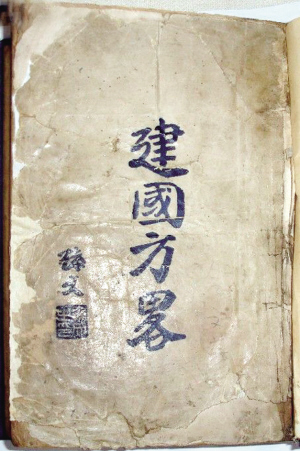 建國方畧
孫文